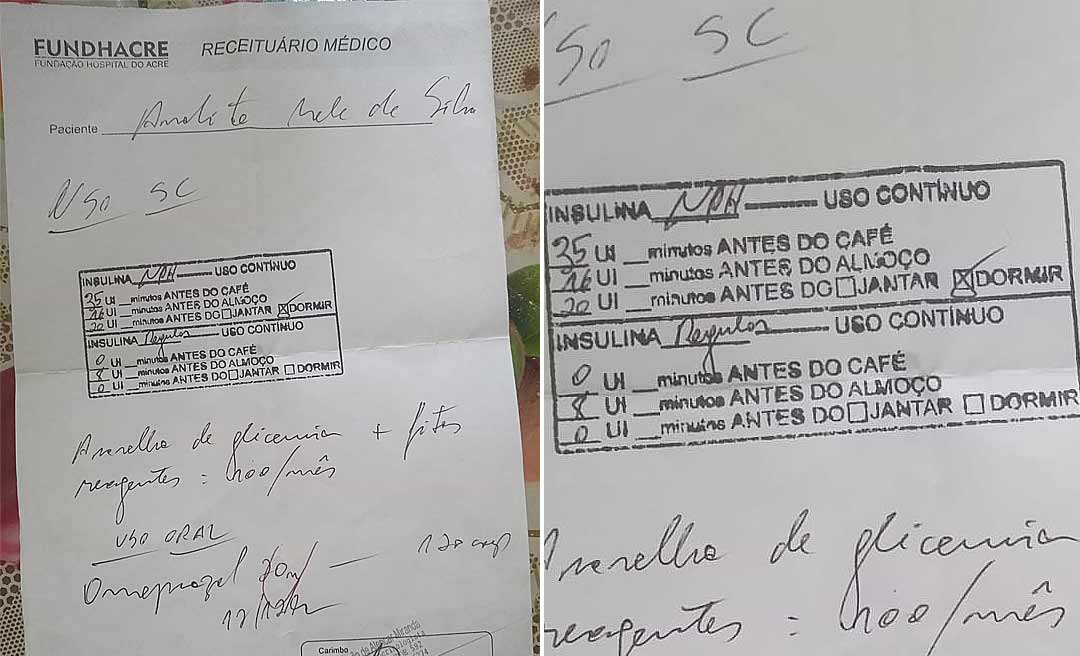 FUNDHACRE
FUNDAÇÃO HOSPITAL DO ACRE
RECEITUÁRIO MÉDICO
Paciente de Silva
USO SC
INSULINA NPH USO CONTÍNUO
35 UI __minutos ANTES DO CAFÉ
16 UI __minutos ANTES DO ALMOÇO
20 UI __minutos ANTES DO ☐JANTAR ☒DORMIR
INSULINA Regular USO CONTÍNUO
0 UI __minutos ANTES DO CAFÉ
8 UI __minutos ANTES DO ALMOÇO
0 UI __minutos ANTES DO ☐JANTAR ☐DORMIR
Aparelho de glicemia + fitas
reagentes : 100/mês
USO ORAL
Omeprazol 20m — 120 cmp
Carimbo
de Alencar Miranda
USO SC
INSULINA NPH USO CONTÍNUO
35 UI __minutos ANTES DO CAFÉ
16 UI __minutos ANTES DO ALMOÇO
20 UI __minutos ANTES DO ☐JANTAR ☒DORMIR
INSULINA Regular USO CONTÍNUO
0 UI __minutos ANTES DO CAFÉ
8 UI __minutos ANTES DO ALMOÇO
0 UI __minutos ANTES DO ☐JANTAR ☐DORMIR
Aparelho de glicemia
reagentes : 100/mês